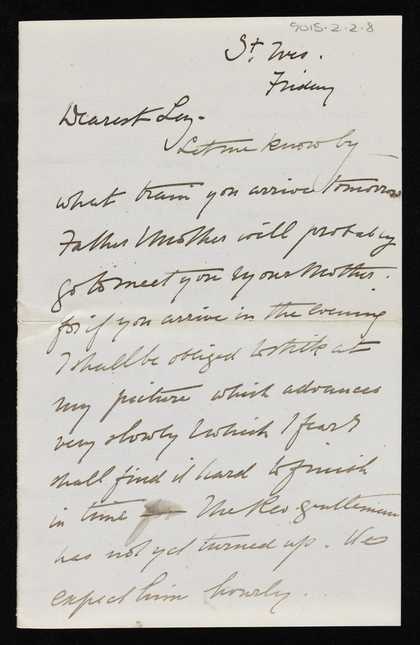 9015-2-2-8
St. Ives.
Friday
Dearest Ley-
Let me know by
what train you arrive tomorrow
Father & Mother will probably
go to meet you & your Mother.
for if you arrive in the evening
I shall be obliged to stick at
my picture which advances
very slowly & which I fear I
shall find it hard to finish
in time — The Rev gentleman
has not yet turned up. We
expect him hourly.